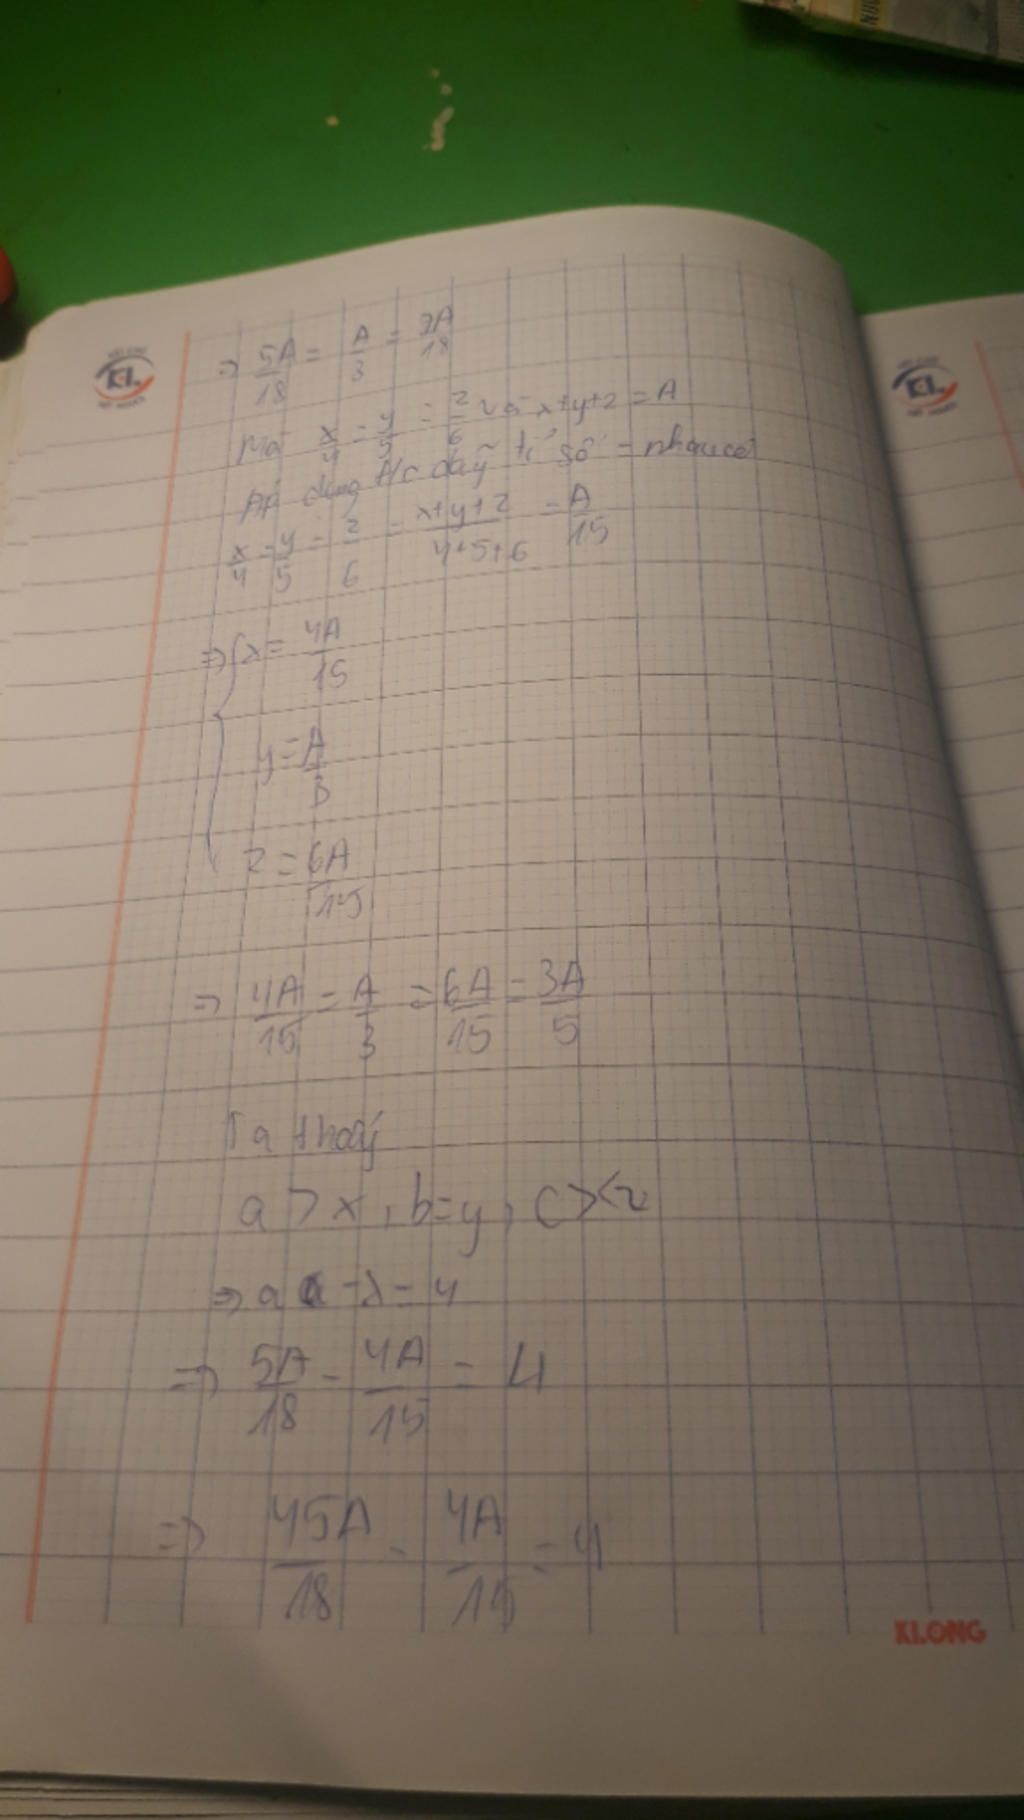 ⇒ 5A/18 = A/3 = 7A/18
Mà x/4 = y/5 = z/6 và x+y+z = A
Áp dụng t/c dãy tỉ số = nhau có
x/4 = y/5 = z/6 = x+y+z/4+5+6 = A/15
⇒ { x = 4A/15
y = A/3
z = 6A/15
⇒ 4A/15 = A/3 = 6A/15 = 3A/5
Ta thấy
a > x, b = y, c > < z
⇒ a a - x = 4
⇒ 5A/18 - 4A/15 = 4
⇒ 45A/18 - 4A/15 = 4
KLONG